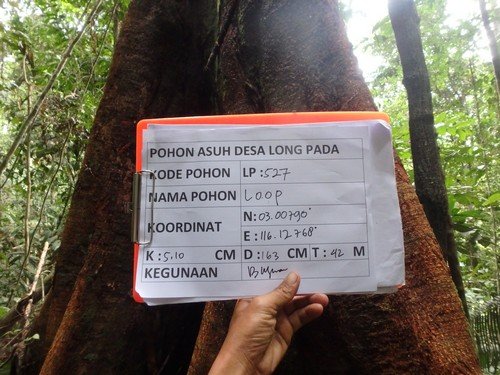 POHON ASUH DESA LONG PADA
KODE POHON LP: 527
NAMA POHON Loop
KOORDINAT N: 03.00790°
E: 116.12768°
K: 5.10 CM D: 163 CM T: 42 M
KEGUNAAN